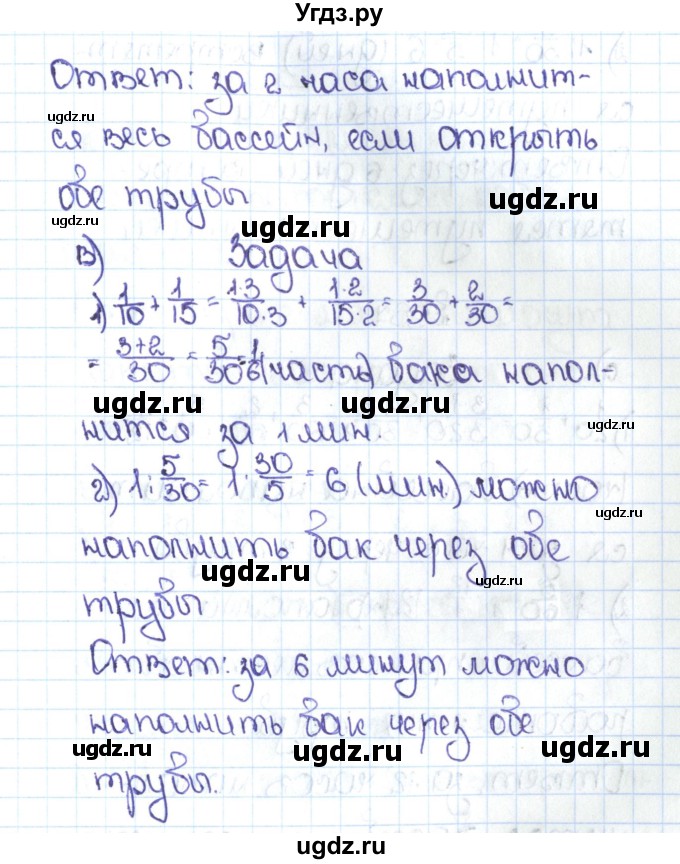 Угдз.ру
Ответ: за 2 часа наполнит-
ugdz.ru ugdz.ru
ся весь бассейн, если открыть
обе трубы
ugdz.ru ugdz.ru
в) Задача
1) 1/10 + 1/15 = 1·3/10·3 + 1·2/15·2 = 3/30 + 2/30 =
= 3+2/30 = 5/30 = 1/6 (часть) бака напол-
ugdz.ru ugdz.ru
нится за 1 мин.
2) 1 : 5/30 = 1 · 30/5 = 6 (мин.) можно
ugdz.ru
наполнить бак через обе
ugdz.ru ugdz.ru
трубы
Ответ: за 6 минут можно
ugdz.ru ugdz.ru
наполнить бак через обе
ugdz.ru ugdz.ru
трубы.
ugdz.ru